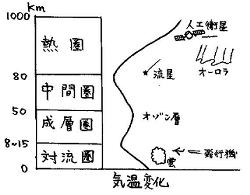 km
1000
熱圏
80
中間圏
50
成層圏
8~15
対流圏
0
人工衛星
オーロラ
流星
オゾン層
飛行機
雲
気温変化